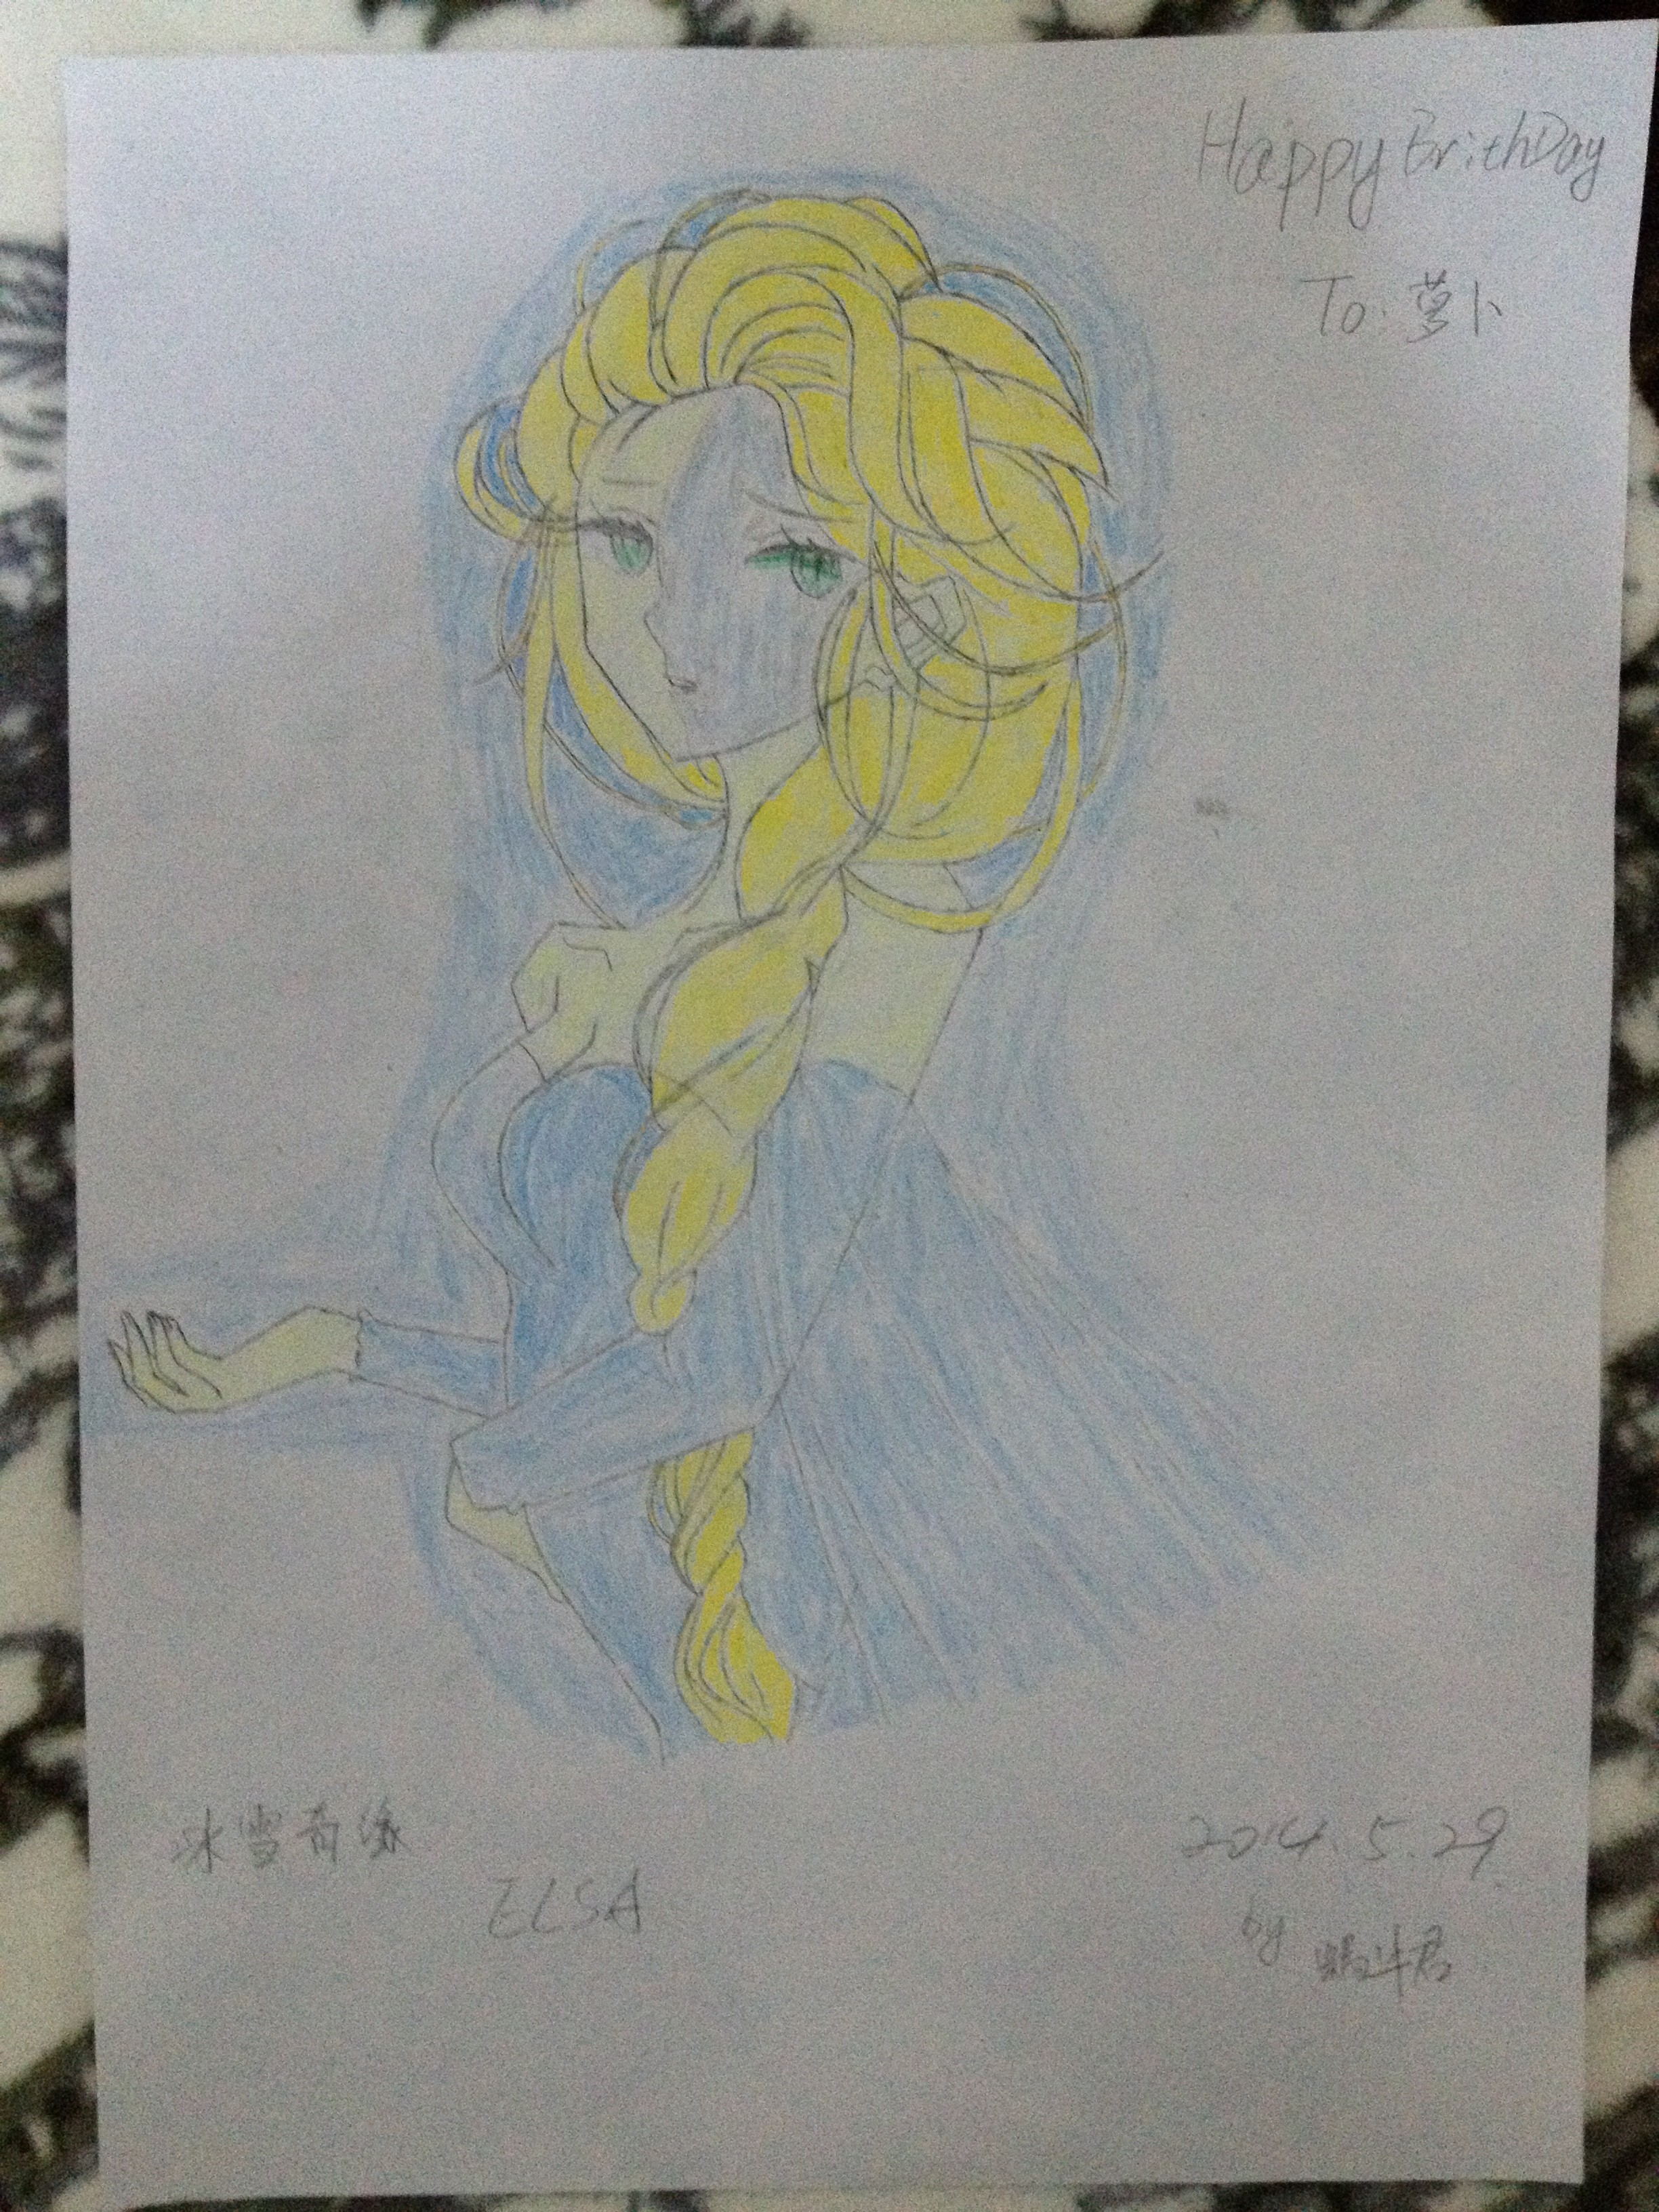 Happy BrithDay
To: 萝卜
冰雪奇缘
ELSA
2014.5.29
by 蜗牛君